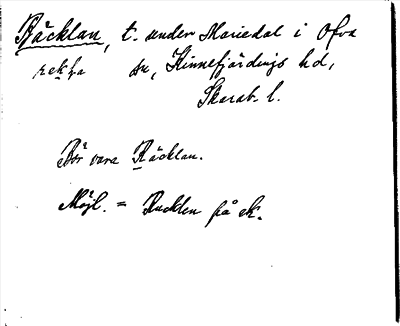 Bäcklan, t. under Mariedal i Ofva
sn, Kinnefjärdings hd,
Skarab. l.
Bör vara Räcklan.
Möjl. = Rucklen på ek.